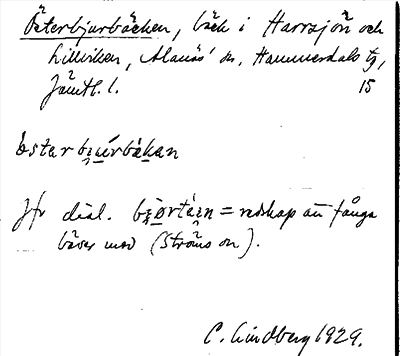 Österbjurbäcken, bäck i Harrsjön och
Lillviken, Alanäs sn, Hammerdals tg,
Jämtl. l. 15
östarbjúrbäkan
Jfr dial. bjørtéin = redskap att fånga
bäver med (Ströms sn).
C. Lindberg 1929.